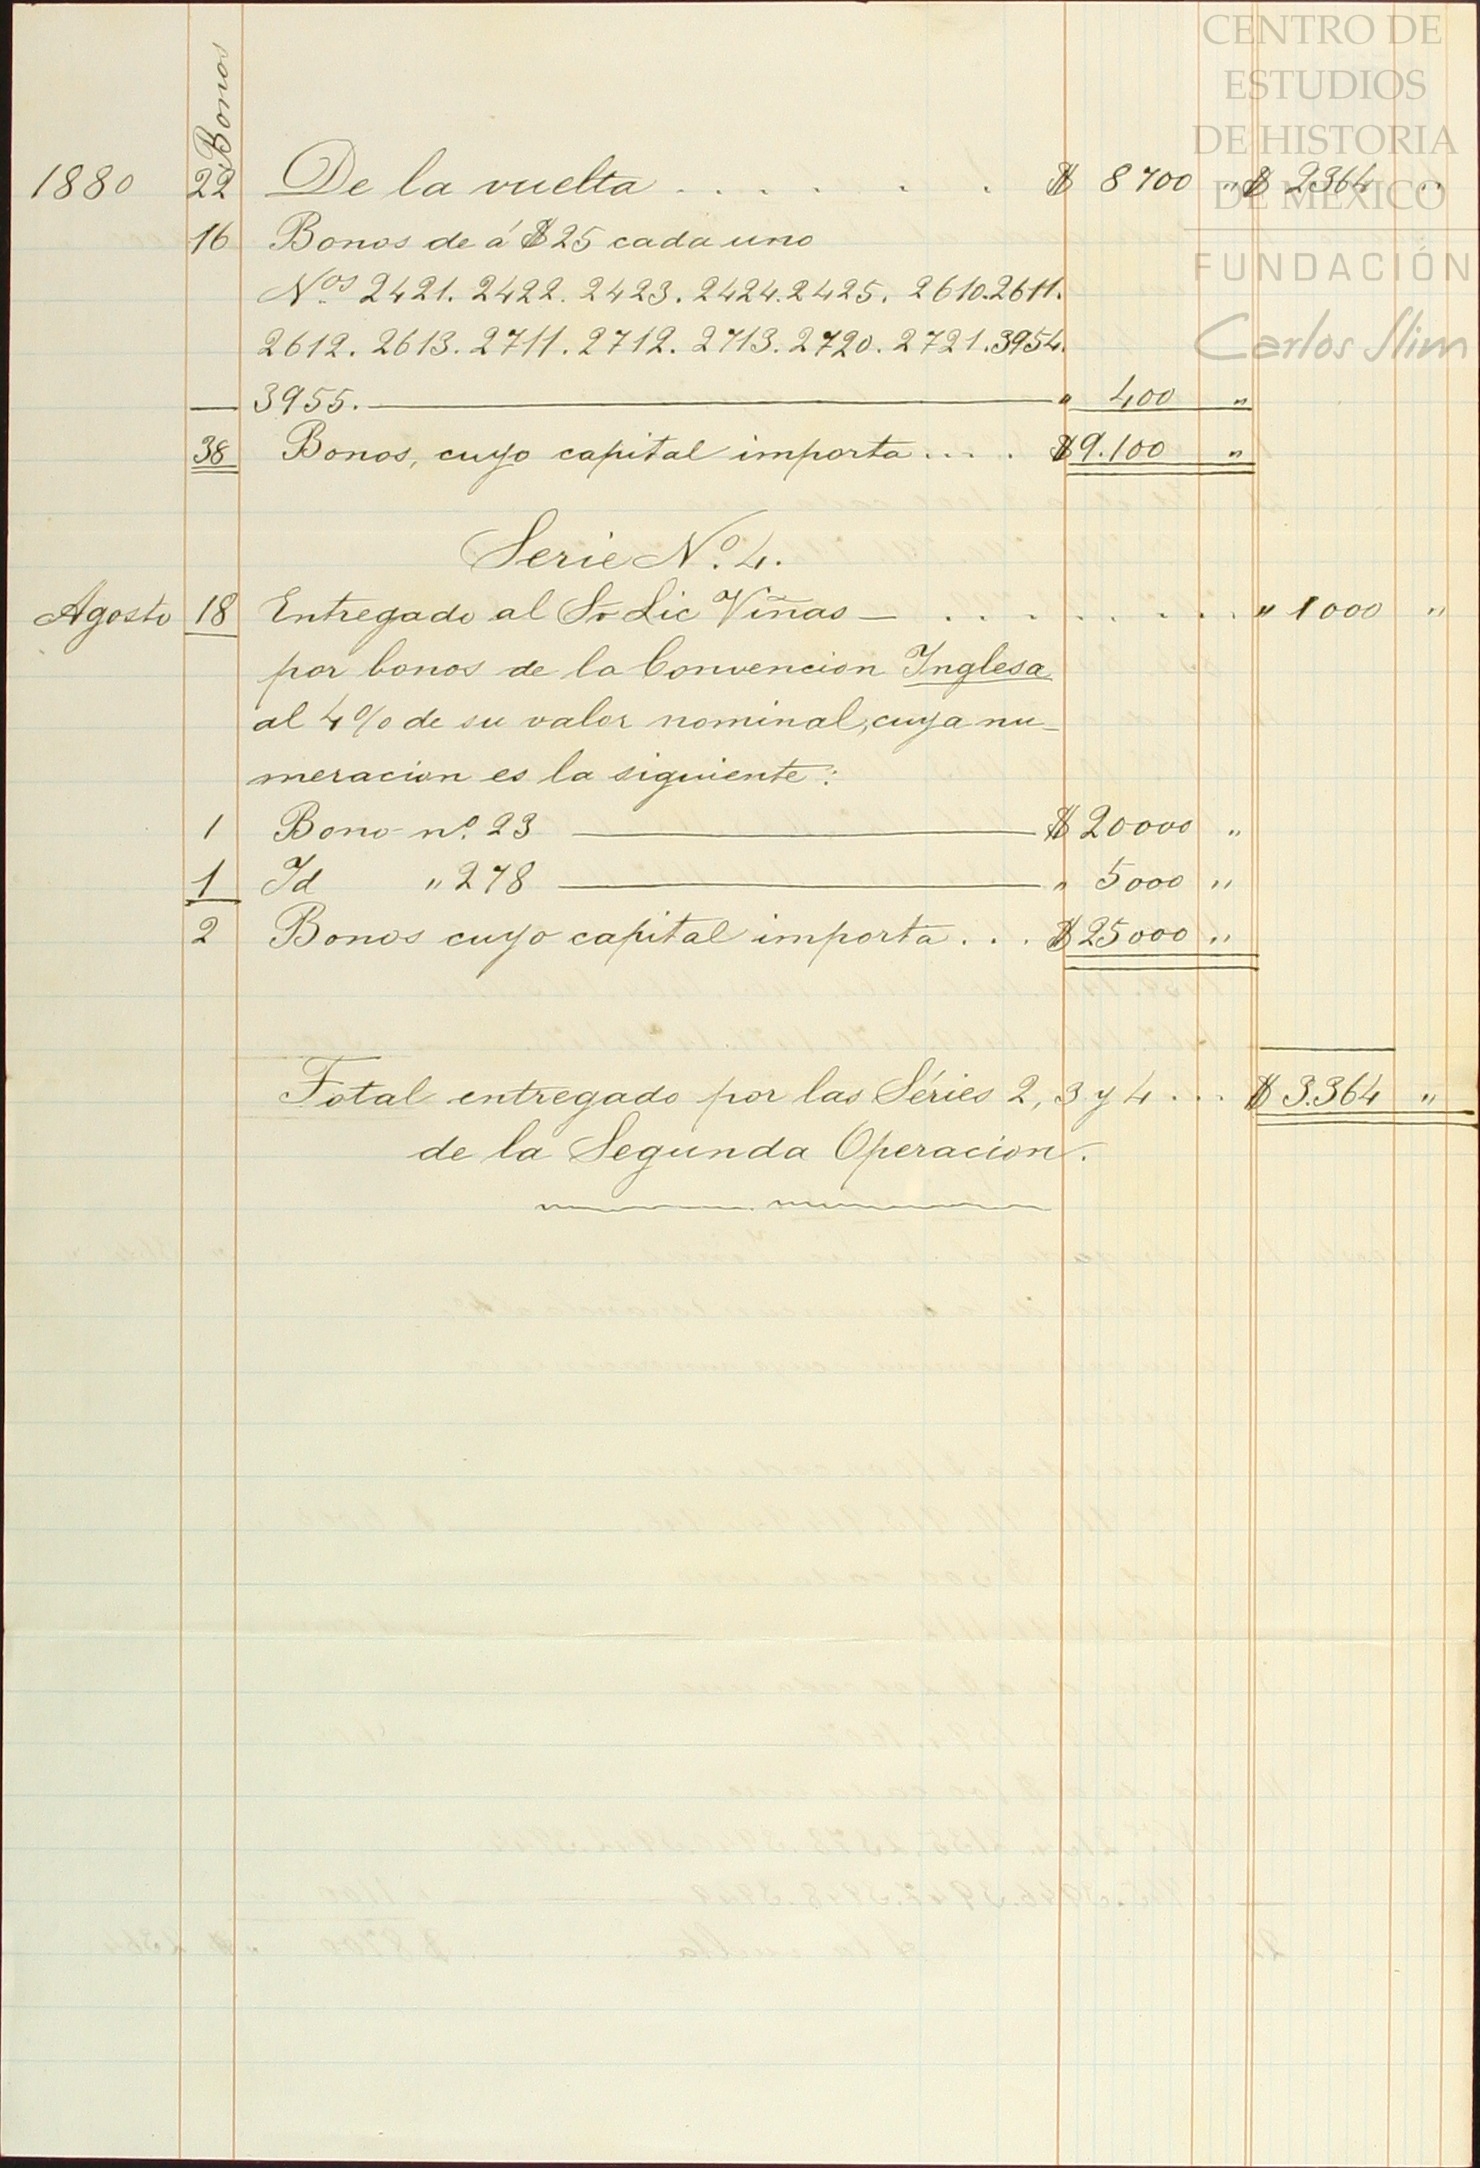 CENTRO DE
ESTUDIOS
DE HISTORIA
DE MÉXICO
FUNDACIÓN
Carlos Slim
Bonos
1880 22 De la vuelta . . . . . . . $ 8700 " $ 2364 "
16 Bonos de á $25 cada uno
Nos. 2421. 2422. 2423. 2424. 2425. 2610. 2611.
2612. 2613. 2711. 2712. 2713. 2720. 2721. 3954.
3955. " 400 "
38 Bonos, cuyo capital importa .... $ 9.100 "
Serie No. 4.
Agosto 18 Entregado al Sr Lic Viñas — . . . . . . . . . " 1000 "
por bonos de la Convencion Inglesa
al 4% de su valor nominal, cuya nu-
meracion es la siguiente:
1 Bono no. 23 $ 20000 "
1 Id " 278 " 5000 "
2 Bonos cuyo capital importa . . . $ 25000 "
Total entregado por las Séries 2, 3 y 4 . . . $ 3.364 "
de la Segunda Operacion.